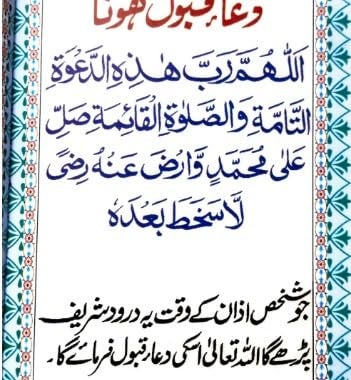 دعا قبول ہونا
اَللّٰهُمَّ رَبَّ هٰذِهِ الدَّعْوَةِ
التَّامَّةِ وَالصَّلٰوةِ الْقَائِمَةِ صَلِّ
عَلٰى مُحَمَّدٍ وَّارْضَ عَنْهُ رِضًى
لَّا سَخَطَ بَعْدَهٗ
جو شخص اذان کے وقت یہ درود شریف
پڑھے گا اللہ تعالیٰ اسکی دعا قبول فرمائے گا۔